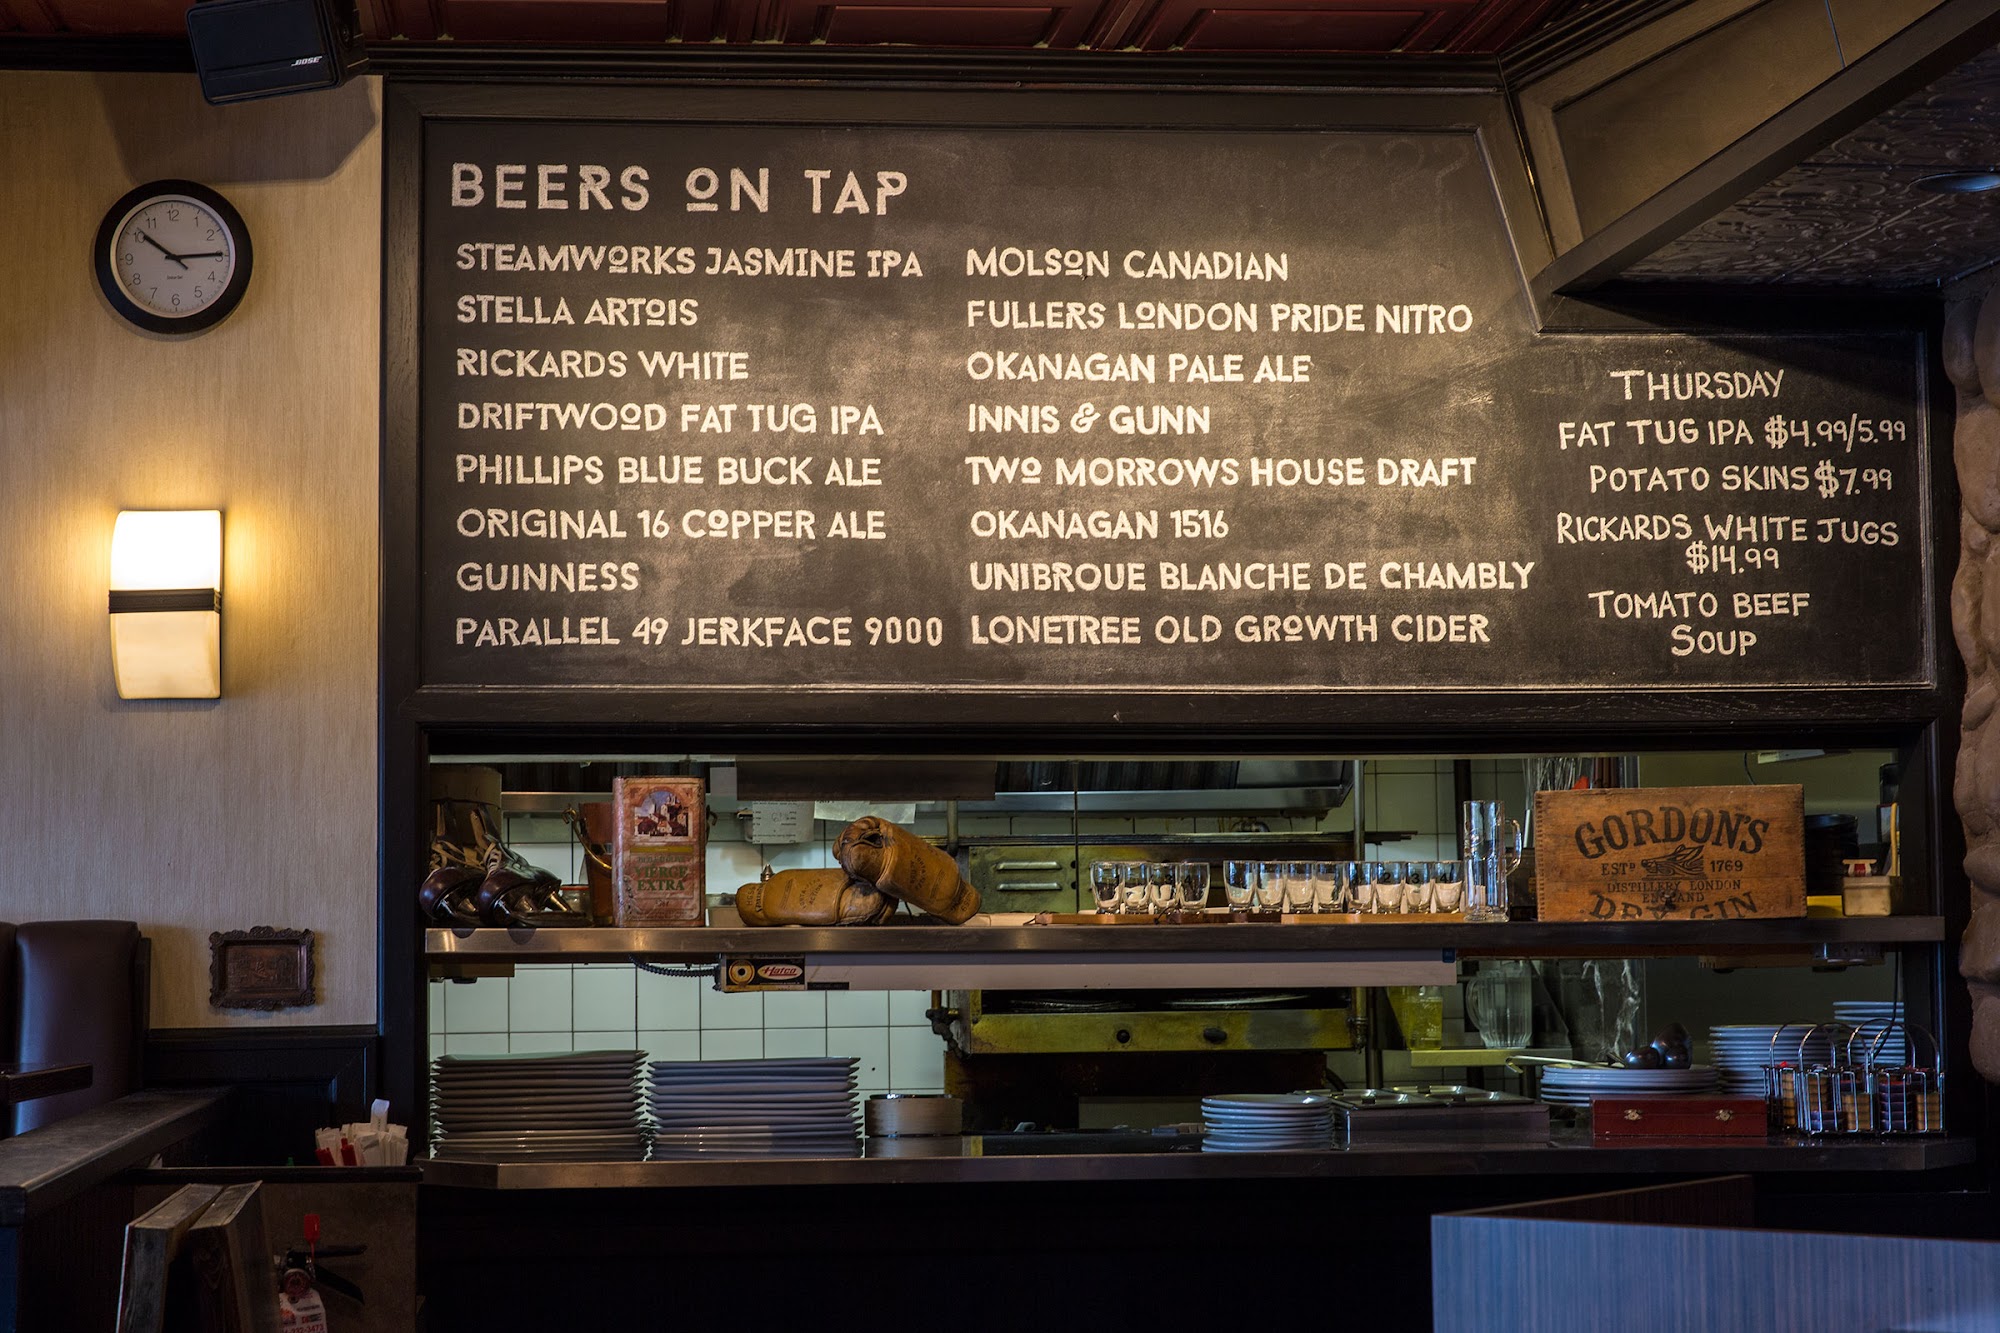 BOSE
BEERS ON TAP
STEAMWORKS JASMINE IPA
STELLA ARTOIS
RICKARDS WHITE
DRIFTWOOD FAT TUG IPA
PHILLIPS BLUE BUCK ALE
ORIGINAL 16 COPPER ALE
GUINNESS
PARALLEL 49 JERKFACE 9000
MOLSON CANADIAN
FULLERS LONDON PRIDE NITRO
OKANAGAN PALE ALE
INNIS & GUNN
TWO MORROWS HOUSE DRAFT
OKANAGAN 1516
UNIBROUE BLANCHE DE CHAMBLY
LONETREE OLD GROWTH CIDER
THURSDAY
FAT TUG IPA $4.99/5.99
POTATO SKINS $7.99
RICKARDS WHITE JUGS
$14.99
TOMATO BEEF
SOUP
12
1
2
3
4
5
6
7
8
9
10
11
VIERGE
EXTRA
GORDON'S
ESTD 1769
DISTILLERY LONDON
ENGLAND
DRY GIN
Hatco